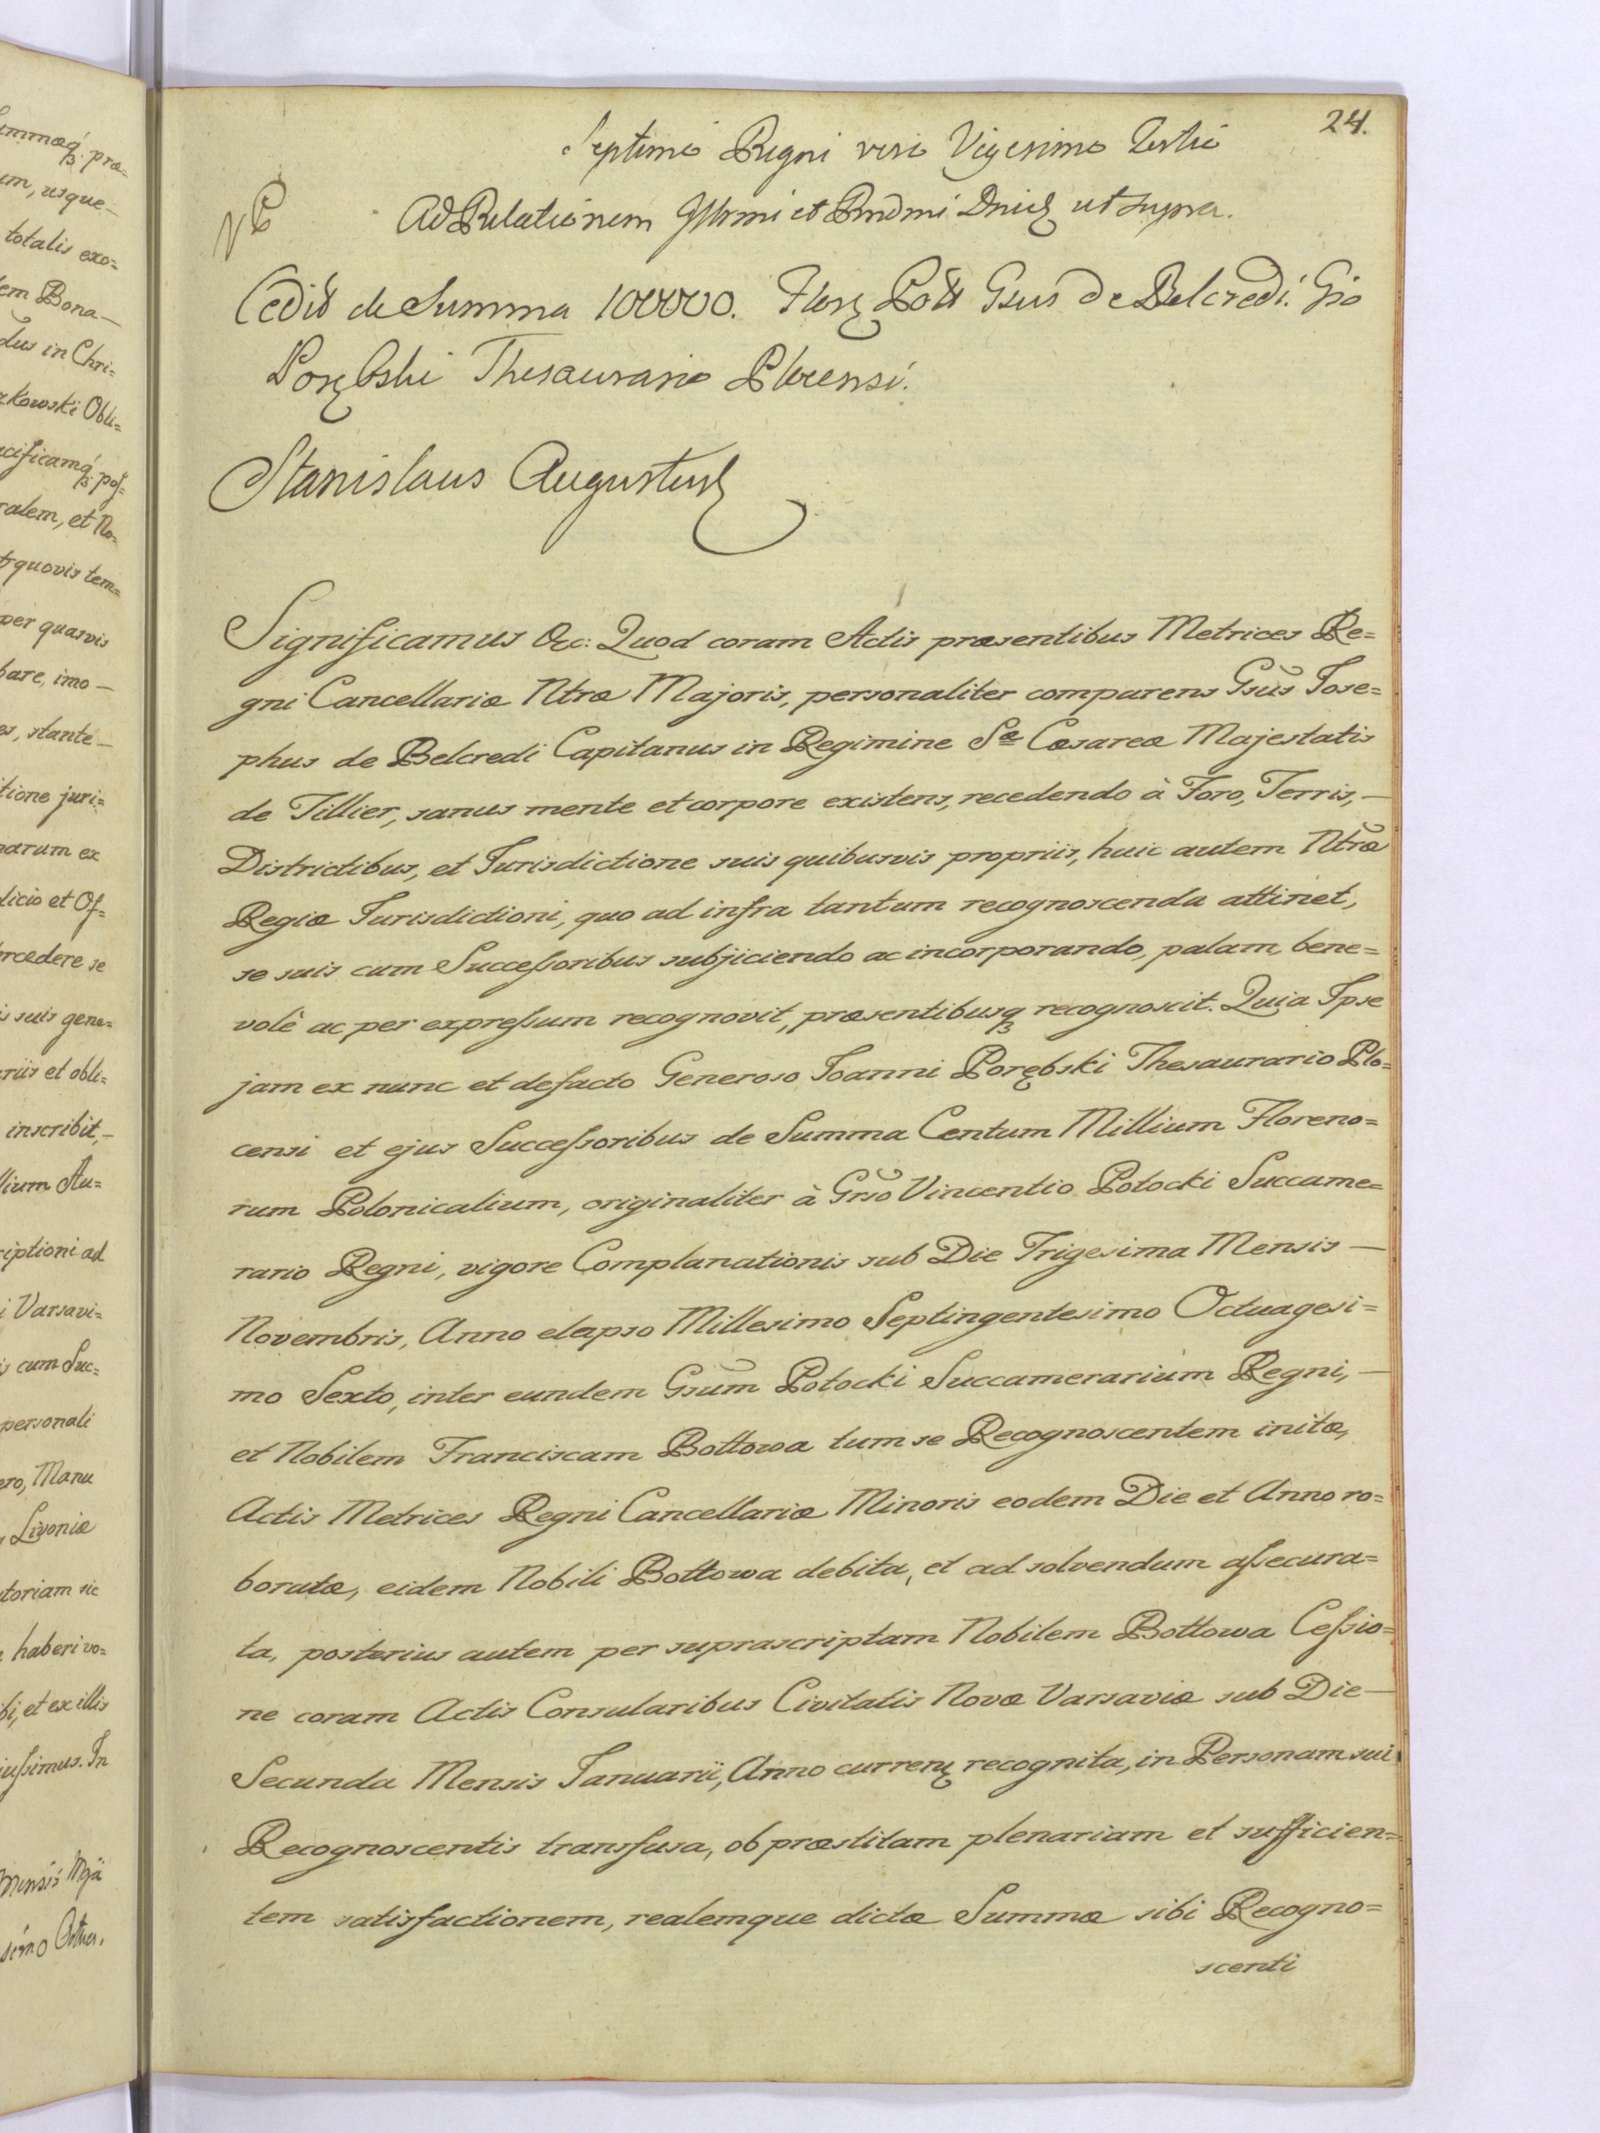 24.
Septimo Regni vero Vigesimo Tertio
Ad Relationem Illrmi et Rndmi Dni ut supra.
NB
Cedit de Summa 100000. Flor Poll Gsus de Belcredi. Gso
Porębski Thesaurario Plocensi.
Stanislaus Augustus
Significamus &c: Quod coram Actis præsentibus Metrices Re=
gni Cancellariæ Ntræ Majoris, personaliter comparens Gsus Jose=
phus de Belcredi Capitanus in Regimine Sæ Cæsareæ Majestatis
de Tillier, sanus mente et corpore existens, recedendo à Foro, Terris, —
Districtibus, et Jurisdictione suis quibusvis propriis, huic autem Ntræ
Regiæ Jurisdictioni, quo ad infra tantum recognoscenda attinet,
se suis cum Successoribus subjiciendo ac incorporando, palam, bene=
volè ac per expressum recognovit, præsentibusq recognoscit. Quia Ipse
jam ex nunc et defacto Generoso Joanni Porębski Thesaurario Plo=
censi et ejus Successoribus de Summa Centum Millium Floreno=
rum Polonicalium, originaliter à Grso Vincentio Potocki Succame=
rario Regni, vigore Complanationis sub Die Trigesima Mensis —
Novembris, Anno elapso Millesimo Septingentesimo Octuagesi=
mo Sexto, inter eundem Gsum Potocki Succamerarium Regni, —
et Nobilem Franciscam Bottowa tum se Recognoscentem initæ,
Actis Metrices Regni Cancellariæ Minoris eodem Die et Anno ro=
boratæ, eidem Nobili Bottowa debita, et ad solvendum assecura=
ta, posterius autem per suprascriptam Nobilem Bottowa Cessio=
ne coram Actis Consularibus Civitatis Novæ Varsaviæ sub Die —
Secunda Mensis Januarii, Anno curren recognita, in Personam sui
Recognoscentis transfusa, ob præstitam plenariam et sufficien=
tem satisfactionem, realemque dictæ Summæ sibi Recogno=
scenti